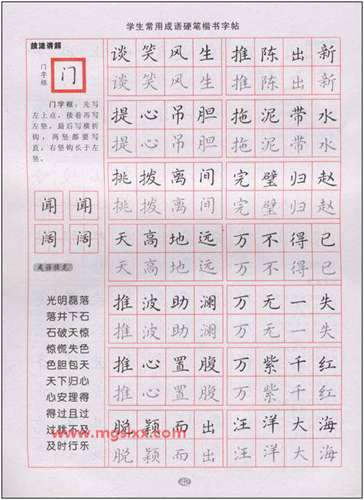 学生常用成语硬笔楷书字帖
技法讲解
门字框
门
门字框：先写
左上点，接着再写
左竖，最后写横折
钩，两竖都要写
直，右竖钩长于左
竖。
闻 闻
阔 阔
成语接龙
光明磊落
落井下石
石破天惊
惊慌失色
色胆包天
天下归心
心安理得
得过且过
过犹不及
及时行乐
谈笑风生 推陈出新
谈笑风生 推陈出新
提心吊胆 拖泥带水
提心吊胆 拖泥带水
挑拨离间 完璧归赵
挑拨离间 完璧归赵
天高地远 万不得已
天高地远 万不得已
推波助澜 万无一失
推波助澜 万无一失
推心置腹 万紫千红
推心置腹 万紫千红
脱颖而出 汪洋大海
脱颖而出 汪洋大海
www.mgsixx.com